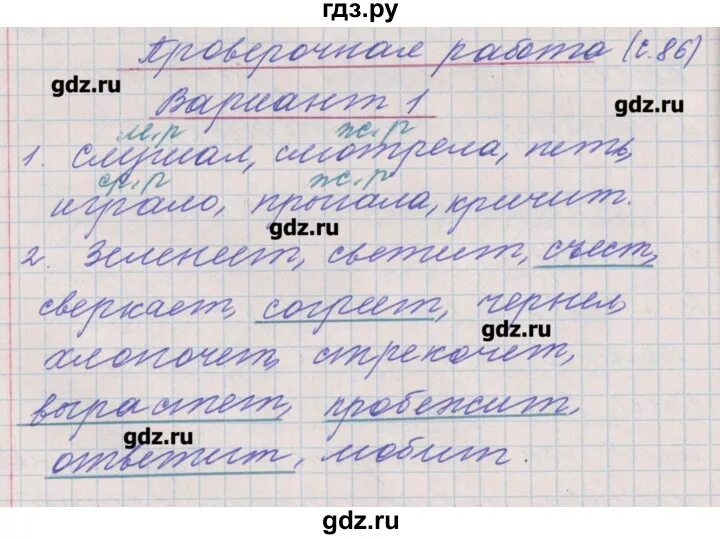 гдз.ру
Проверочная работа (с.86)
gdz.ru
gdz.ru
Вариант 1
м.р ж.р
1. слушал, смотрела, петь,
ср.р ж.р
играло, прыгала, кричит.
gdz.ru
2. Зеленеет, светит, съест,
сверкает, согреет, чернел,
gdz.ru
хлопочет, стрекочет,
вырастет, пробежит,
gdz.ru
ответит, любит.
gdz.ru